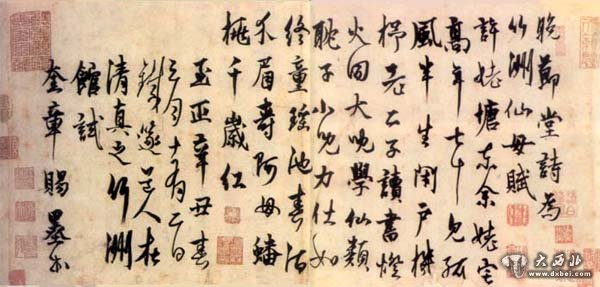 晚節堂詩為
竹洲仙母賦
許姥塘東余姥宅
高年七十見孤
風半生閉戶機
杼老二子讀書燈
火同大兒學仙類
聃子小兒力仕如
終童瑤池春酒
介眉壽阿母蟠
桃千歲紅
至正辛丑春
三月十有二日
鐵篴道人在
清真之竹洲
館試
奎章賜墨書
大西北
www.dxbei.com